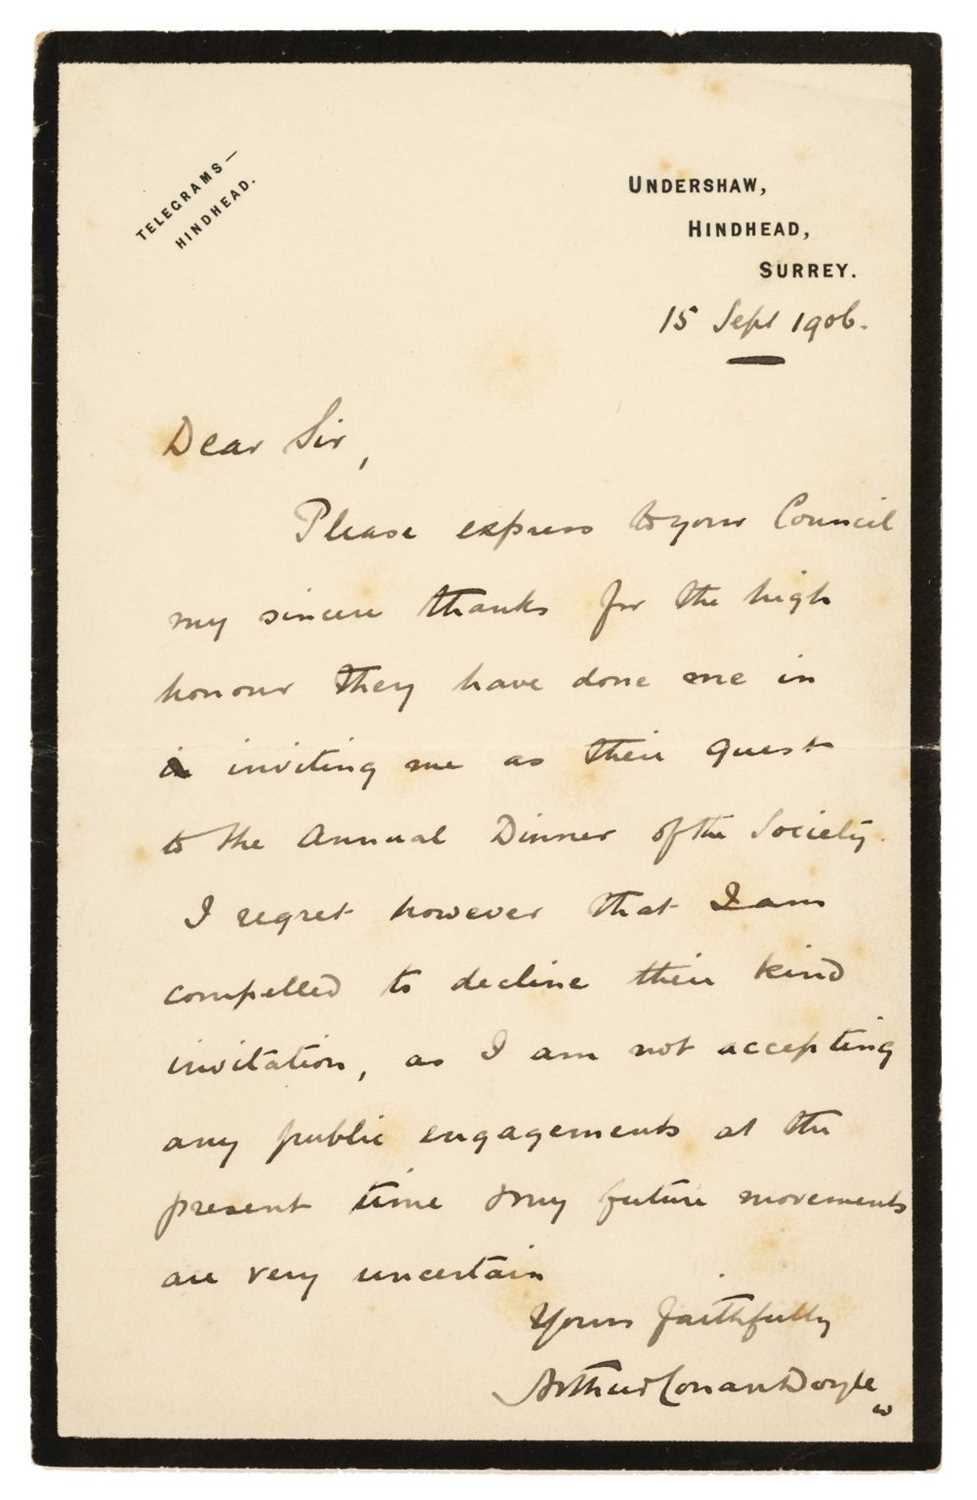 TELEGRAMS—
HINDHEAD.
UNDERSHAW,
HINDHEAD,
SURREY.
15 Sept 1906.
Dear Sir,
Please express to your Council
my sincere thanks for the high
honour they have done me in
in inviting me as their guest
to the Annual Dinner of the Society.
I regret however that I am
compelled to decline their kind
invitation, as I am not accepting
any public engagements at the
present time & my future movements
are very uncertain
Yours faithfully
Arthur Conan Doyle
w